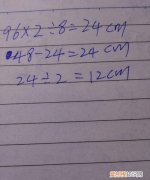 96×2÷8=24cm
48-24=24cm
24÷2=12cm